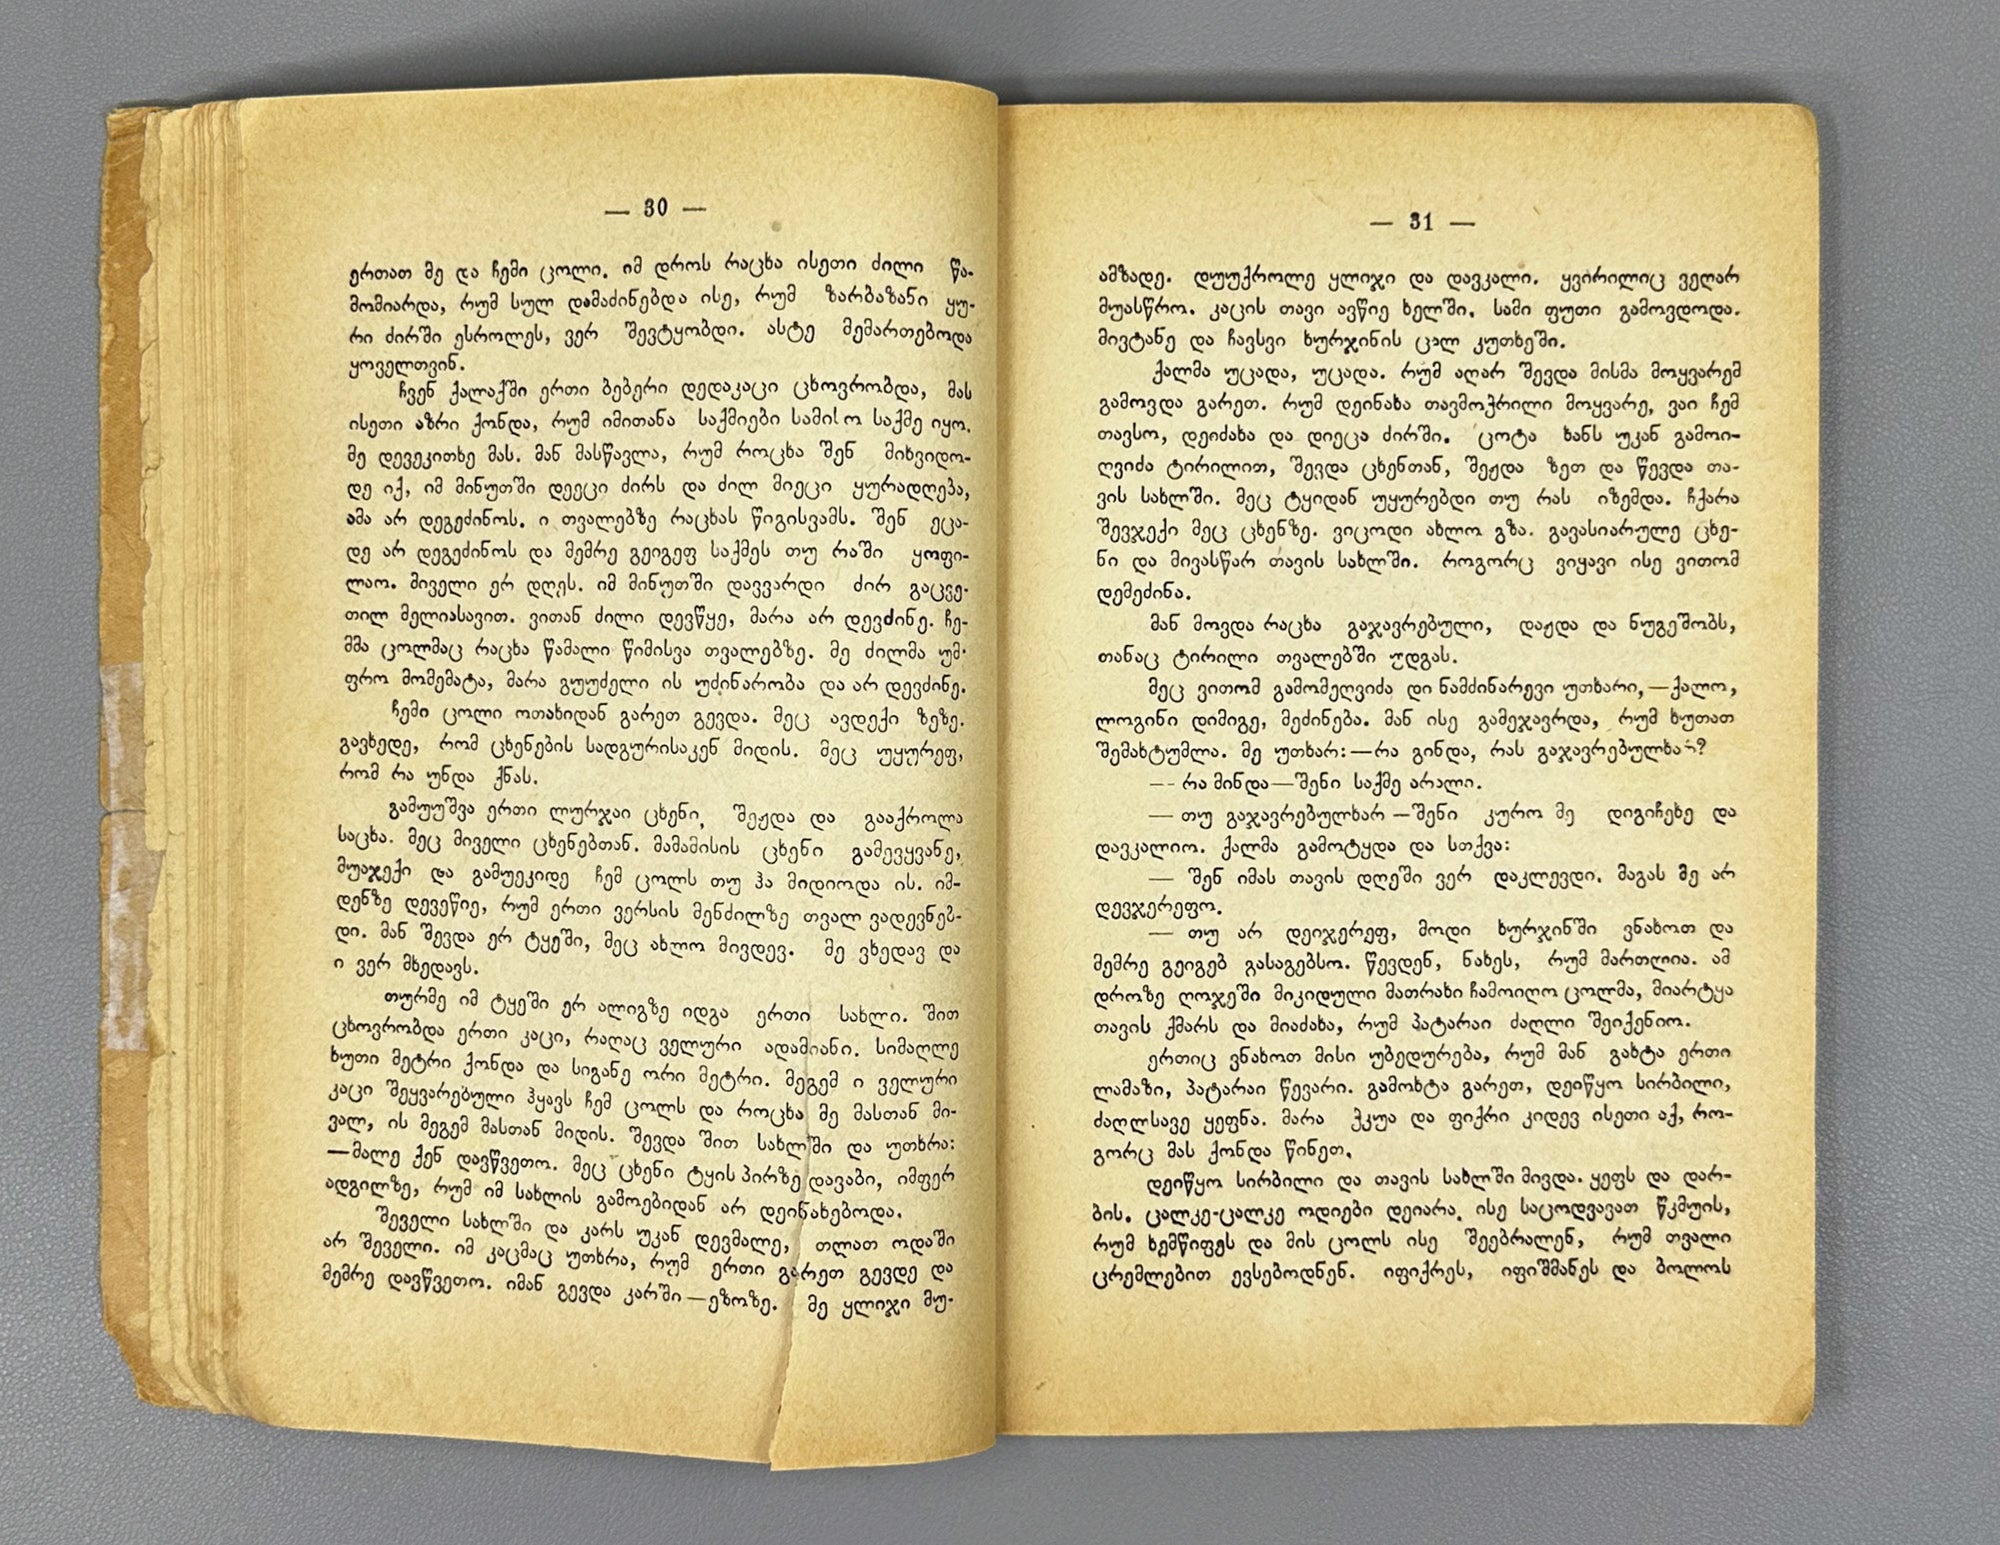 — 30 —
ერთათ მე და ჩემი ცოლი. იმ დროს რაცხა ისეთი ძილი წა-
მომიარდა, რუმ სულ დამაძინებდა ისე, რუმ ზარბაზანი ყუ-
რი ძირში ესროლეს, ვერ შევტყობდი. ასტე მემართებოდა
ყოველთვინ.
ჩვენ ქალაქში ერთი ბებერი დედაკაცი ცხოვრობდა, მას
ისეთი აზრი ქონდა, რუმ იმითანა საქმიები სამისო საქმე იყო.
მე დევეკითხე მას. მან მასწავლა, რუმ როცხა შენ მიხვიდო-
დე იქ, იმ მინუთში დეეცი ძირს და ძილ მიეცი ყურადღება,
ამა არ დეგეძინოს. ი თვალებზე რაცხას წიგისვამს. შენ ეცა-
დე არ დეგეძინოს და მემრე გეიგეფ საქმეს თუ რაში ყოფი-
ლაო. მიველი ერ დღეს. იმ მინუთში დავვარდი ძირ გაცვე-
თილ მელიასავით. ვითან ძილი დევწყე, მარა არ დევძინე. ჩე-
მმა ცოლმაც რაცხა წამალი წიმისვა თვალებზე. მე ძილმა უმ-
ფრო მომემატა, მარა გუუძელი ის უძინარობა და არ დევძინე.
ჩემი ცოლი ოთახიდან გარეთ გევდა. მეც ავდექი ზეზე.
გავხედე, რომ ცხენების სადგურისაკენ მიდის. მეც უყურეფ,
რომ რა უნდა ქნას.
გამუუშვა ერთი ლურჯაი ცხენი, შეჟდა და გააქროლა
საცხა. მეც მიველი ცხენებთან. მამამისის ცხენი გამევყვანე,
მუაჯექი და გამუეკიდე ჩემ ცოლს თუ ჰა მიდიოდა ის. იმ-
დენზე დევეწიე, რუმ ერთი ვერსის მენძილზე თვალ ვადევნებ-
დი. მან შევდა ერ ტყეში, მეც ახლო მივდევ. მე ვხედავ და
ი ვერ მხედავს.
თურმე იმ ტყეში ერ ალიგზე იდგა ერთი სახლი. შით
ცხოვრობდა ერთი კაცი, რაღაც ველური ადამიანი. სიმაღლე
ხუთი მეტრი ქონდა და სიგანე ორი მეტრი. მეგემ ი ველური
კაცი შეყვარებული ჰყავს ჩემ ცოლს და როცხა მე მასთან მი-
ვალ, ის მეგემ მასთან მიდის. შევდა შით სახლში და უთხრა:
—მალე ქენ დავწვეთო. მეც ცხენი ტყის პირზე დავაბი, იმფერ
ადგილზე, რუმ იმ სახლის გამოებიდან არ დეინახებოდა.
შეველი სახლში და კარს უკან დევმალე, თლათ ოდაში
არ შეველი. იმ კაცმაც უთხრა, რუმ ერთი გარეთ გევდე და
მემრე დავწვეთო. იმან გევდა კარში—ეზოზე. მე ყლიჯი მუ-
— 31 —
ამზადე. დუუქროლე ყლიჯი და დავკალი. ყვირილიც ველარ
მუასწრო. კაცის თავი ავწიე ხელში, სამი ფუთი გამოვდოდა.
მივტანე და ჩავსვი ხურჯინის ცალ კუთხეში.
ქალმა უცადა, უცადა. რუმ აღარ შევდა მისმა მოყვარემ
გამოვდა გარეთ. რუმ დეინახა თავმოჭრილი მოყვარე, ვაი ჩემ
თავსო, დეიძახა და დიეცა ძირში. ცოტა ხანს უკან გამოი-
ღვიძა ტირილით, შევდა ცხენთან, შეჟდა ზეთ და წევდა თა-
ვის სახლში. მეც ტყიდან უყურებდი თუ რას იზემდა. ჩქარა
შევჯექი მეც ცხენზე. ვიცოდი ახლო გზა. გავასიარულე ცხე-
ნი და მივასწარ თავის სახლში. როგორც ვიყავი ისე ვითომ
დემეძინა.
მან მოვდა რაცხა გაჯავრებული, დაჟდა და ნუგეშობს,
თანაც ტირილი თვალებში უდგას.
მეც ვითომ გამომეღვიძა დი ნამძინარევი უთხარი,—ქალო,
ლოგინი დიმიგე, მეძინება. მან ისე გამეჯავრდა, რუმ ხუთათ
შემახტუმლა. მე უთხარ:—რა გინდა, რას გაჯავრებულხარ?
— რა მინდა—შენი საქმე არალი.
— თუ გაჯავრებულხარ—შენი კურო მე დიგიჩეხე და
დავკალიო. ქალმა გამოტყდა და სთქვა:
— შენ იმას თავის დღეში ვერ დაკლევდი. მაგას მე არ
დევჯერეფო.
— თუ არ დეიჯერეფ, მოდი ხურჯინში ვნახოთ და
მემრე გეიგებ გასაგებსო. წევდენ, ნახეს, რუმ მართლია. ამ
დროზე ღოჯეში მიკიდული მათრახი ჩამოიღო ცოლმა, მიარტყა
თავის ქმარს და მიაძახა, რუმ პატარაი ძაღლი შეიქენიო.
ერთიც ვნახოთ მისი უბედურება, რუმ მან გახტა ერთი
ლამაზი, პატარაი წევარი. გამოხტა გარეთ, დეიწყო სირბილი,
ძაღლსავე ყეფნა. მარა ჰკუა და ფიქრი კიდევ ისეთი აქ, რო-
გორც მას ქონდა წინეთ.
დეიწყო სირბილი და თავის სახლში მივდა. ყეფს და დარ-
ბის. ცალკე-ცალკე ოდიები დეიარა. ისე საცოდვავათ წკმუის,
რუმ ხემწიფეს და მის ცოლს ისე შეებრალენ, რუმ თვალი
ცრემლებით ევსებოდნენ. იფიქრეს, იფიშმანეს და ბოლოს